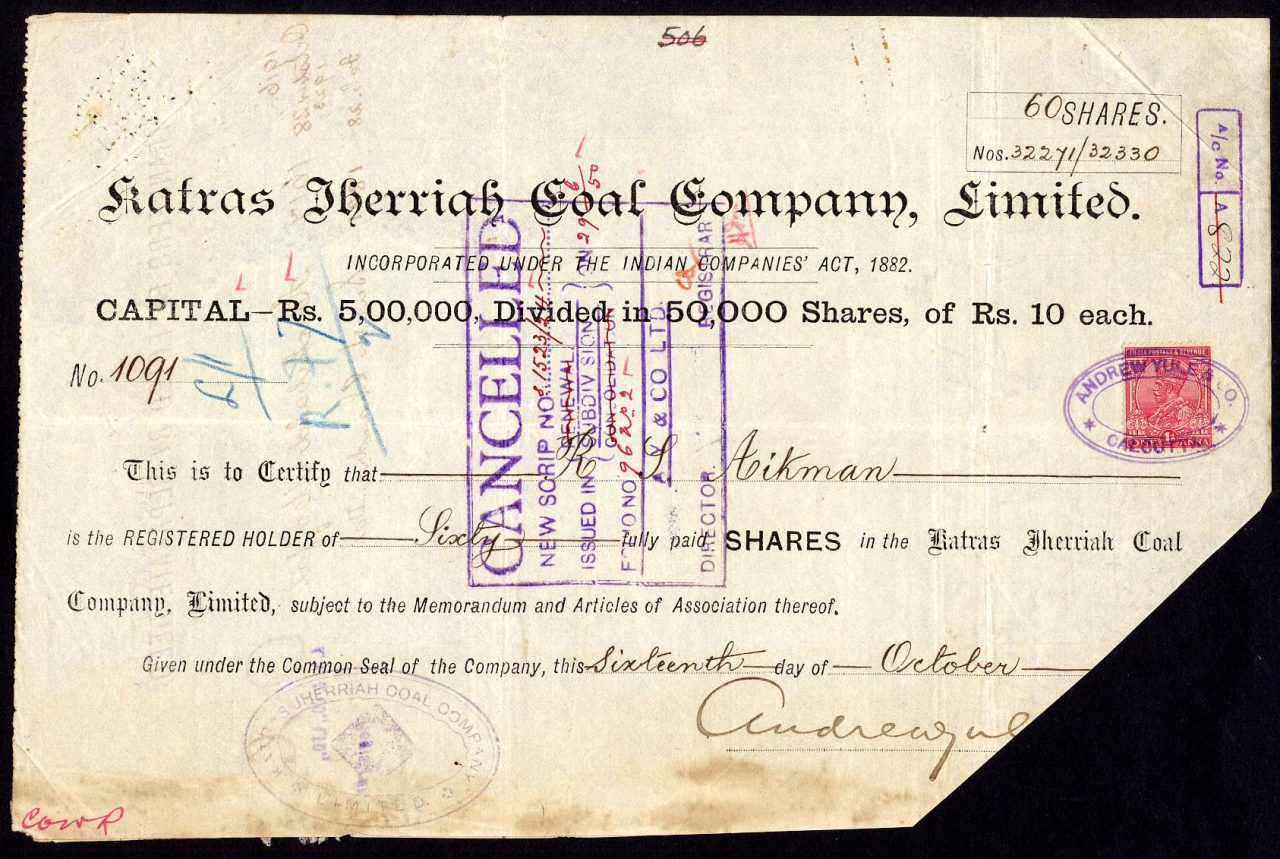 506
60 SHARES.
Nos. 32271/32330
A/c No. A 822
Katras Jherriah Coal Company, Limited.
INCORPORATED UNDER THE INDIAN COMPANIES' ACT, 1882.
CAPITAL—Rs. 5,00,000, Divided in 50,000 Shares, of Rs. 10 each.
No. 1091
INDIA POSTAGE & REVENUE
ANDREW YULE & CO.
CALCUTTA
This is to Certify that R S Aikman
is the REGISTERED HOLDER of Sixty fully paid SHARES in the Katras Jherriah Coal
Company, Limited, subject to the Memorandum and Articles of Association thereof.
Given under the Common Seal of the Company, this Sixteenth day of October
Andrew Yul
CANCELLED
NEW SCRIP NO.
RENEWAL
ISSUED IN SUBDIVISION ON
CONSOLIDATION
FOLIO NO
A. Y. & CO LTD
DIRECTOR REGISTRAR
KATRAS JHERRIAH COAL COMPANY
LIMITED